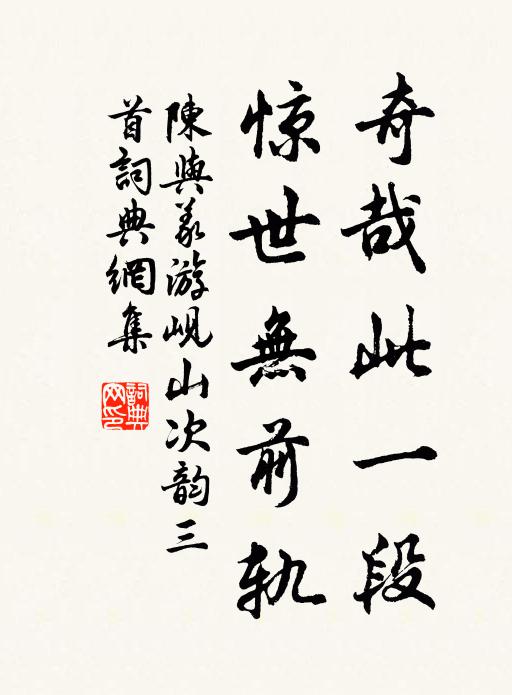 奇哉此一段
惊世無前轨
陳與义游岘山次韵三
首詞典網集
詞典网印